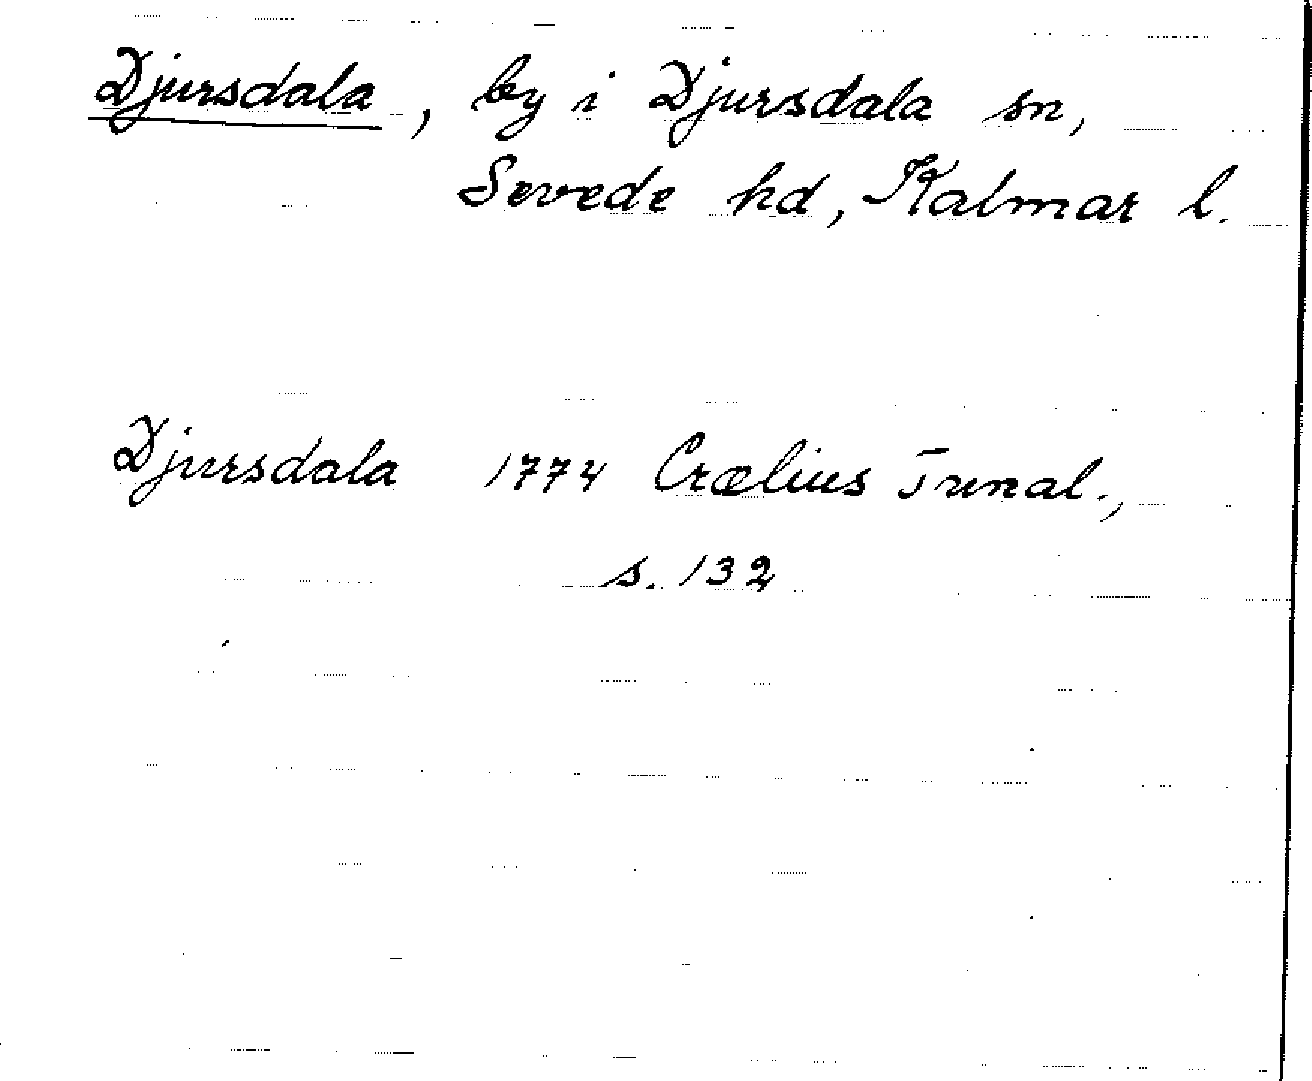 Djursdala, by i Djursdala sn,
Sevede hd, Kalmar l.
Djursdala 1774 Crælius Tunal.,
s. 132